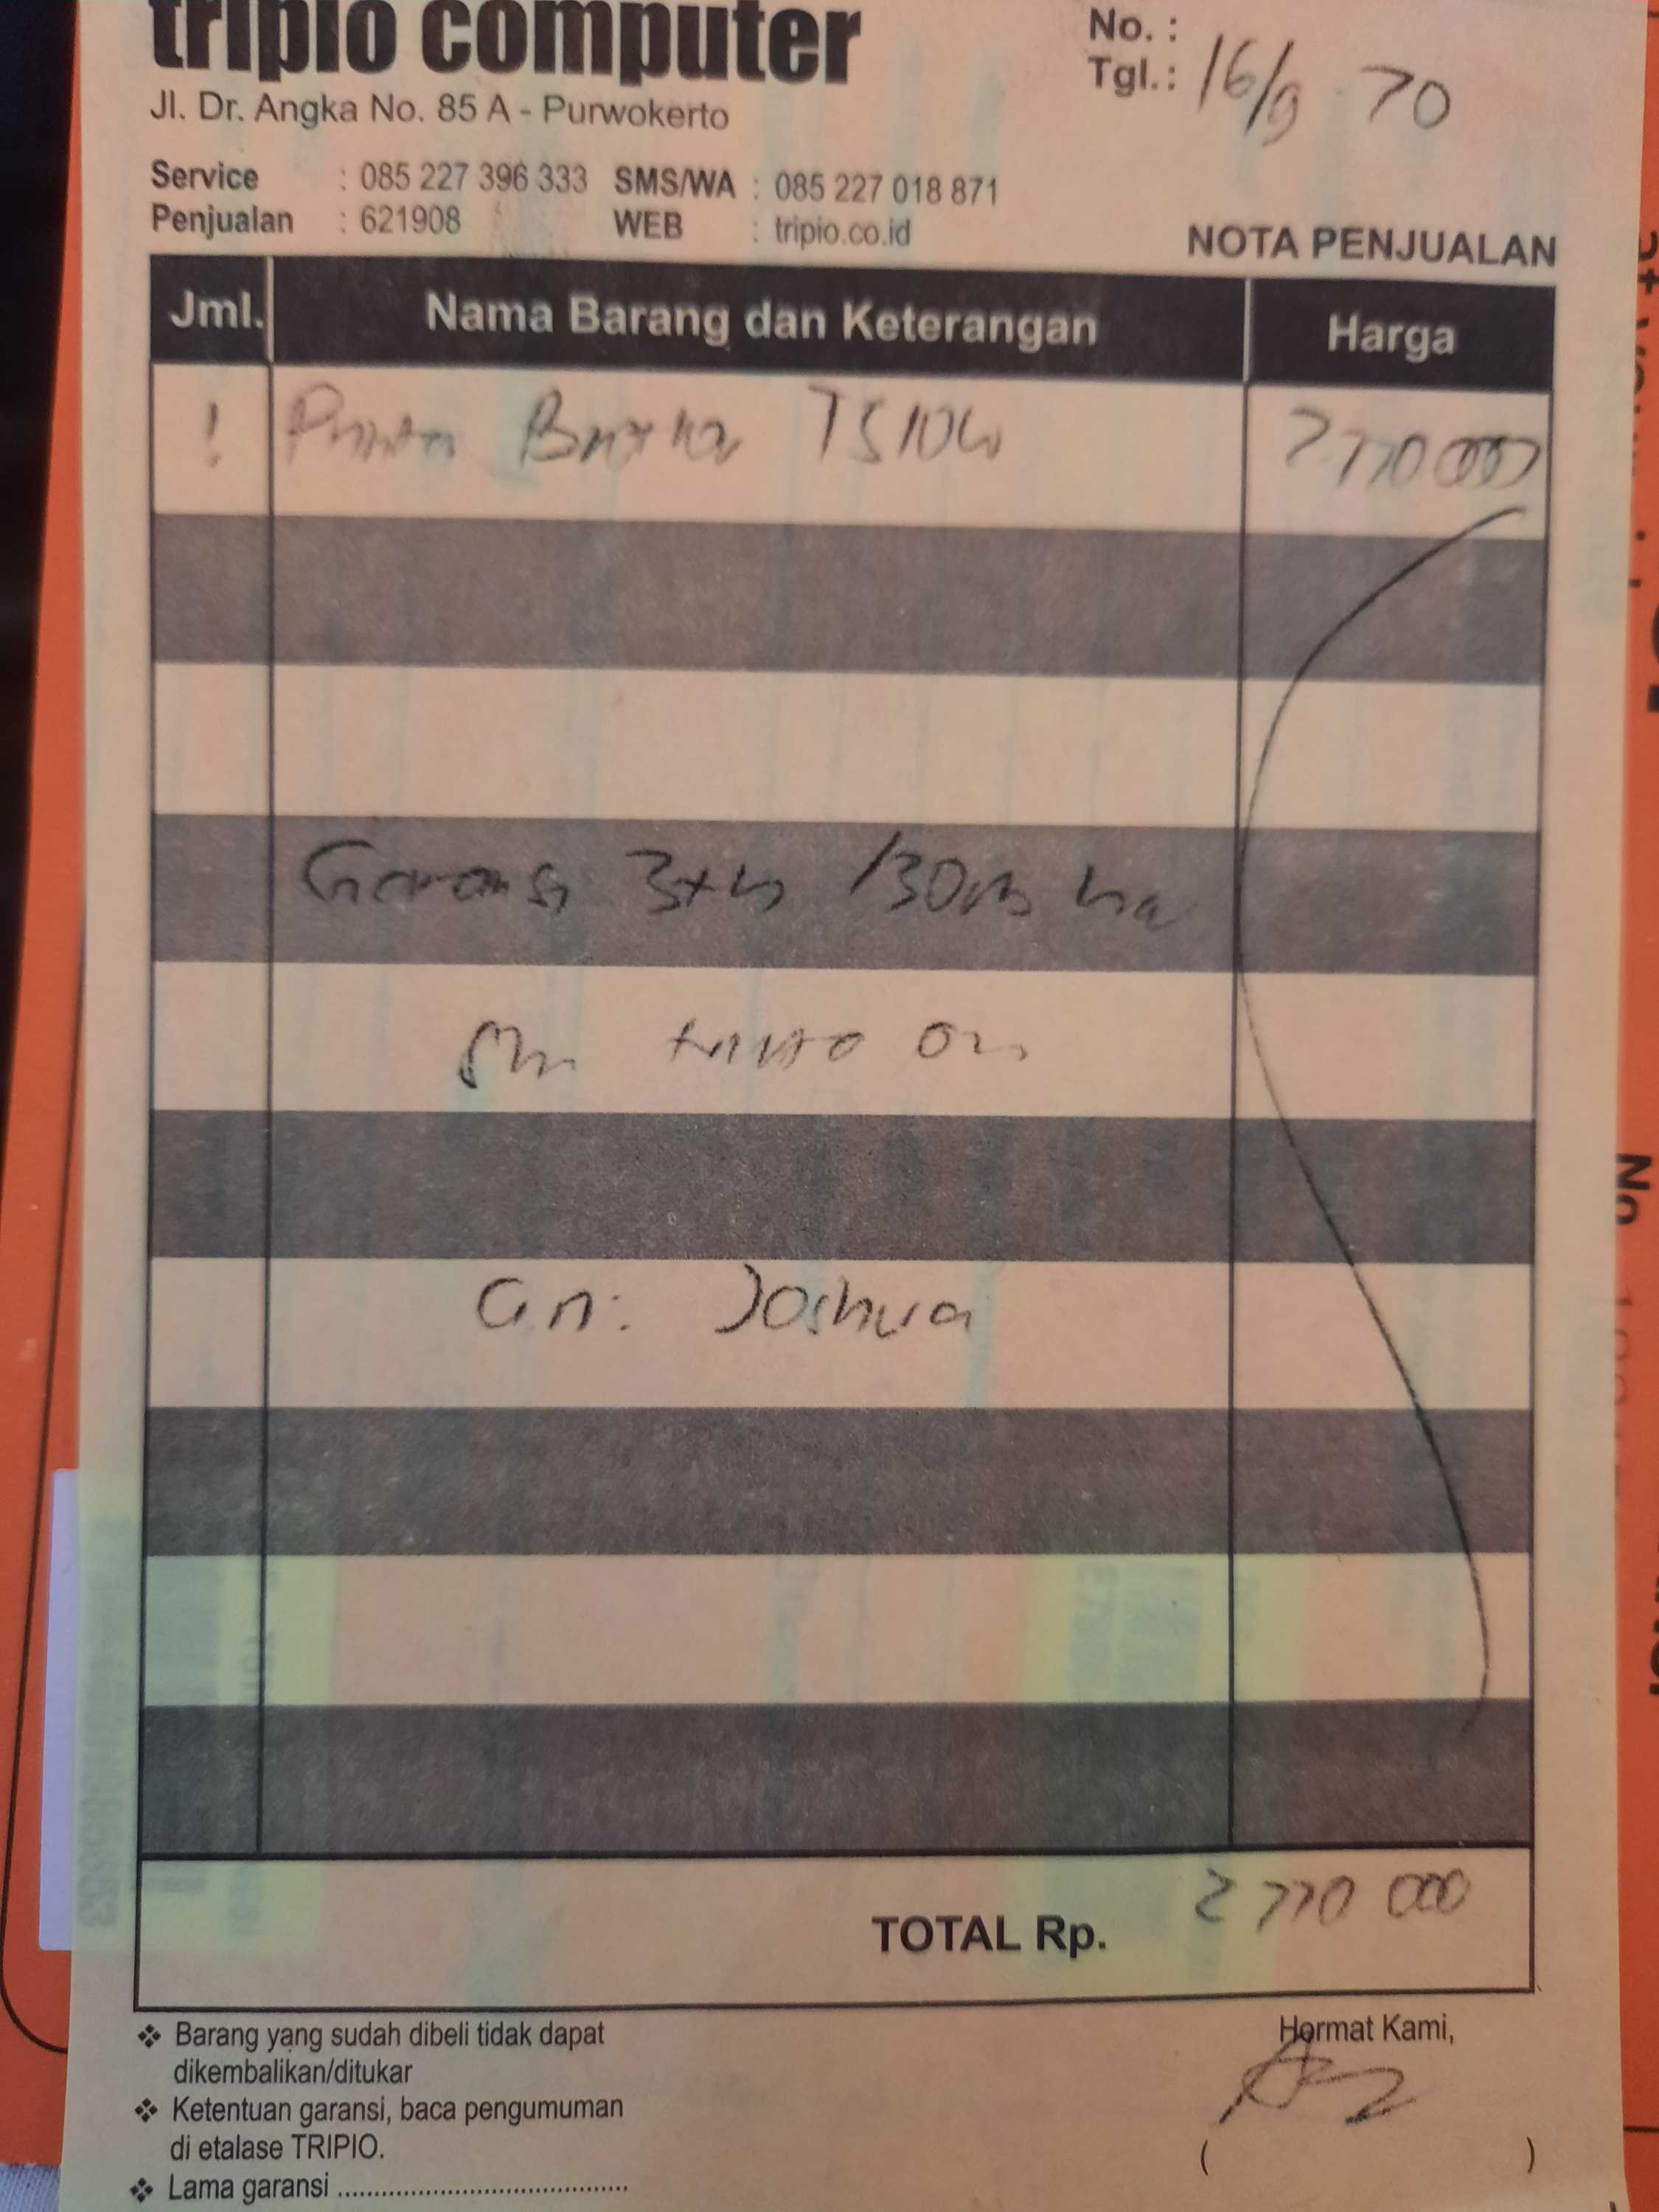 tripio computer
Jl. Dr. Angka No. 85 A - Purwokerto
No. :
Tgl. : 16/9 70
Service : 085 227 396 333 SMS/WA : 085 227 018 871
Penjualan : 621908 WEB : tripio.co.id
NOTA PENJUALAN
Jml. Nama Barang dan Keterangan Harga
1 2770000
Garansi 3th
an: Joshua
TOTAL Rp. 2770 000
❖ Barang yang sudah dibeli tidak dapat
dikembalikan/ditukar
❖ Ketentuan garansi, baca pengumuman
di etalase TRIPIO.
❖ Lama garansi ..........................................
Hormat Kami,
( )